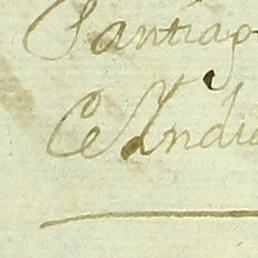 Santiago
Ce Indio